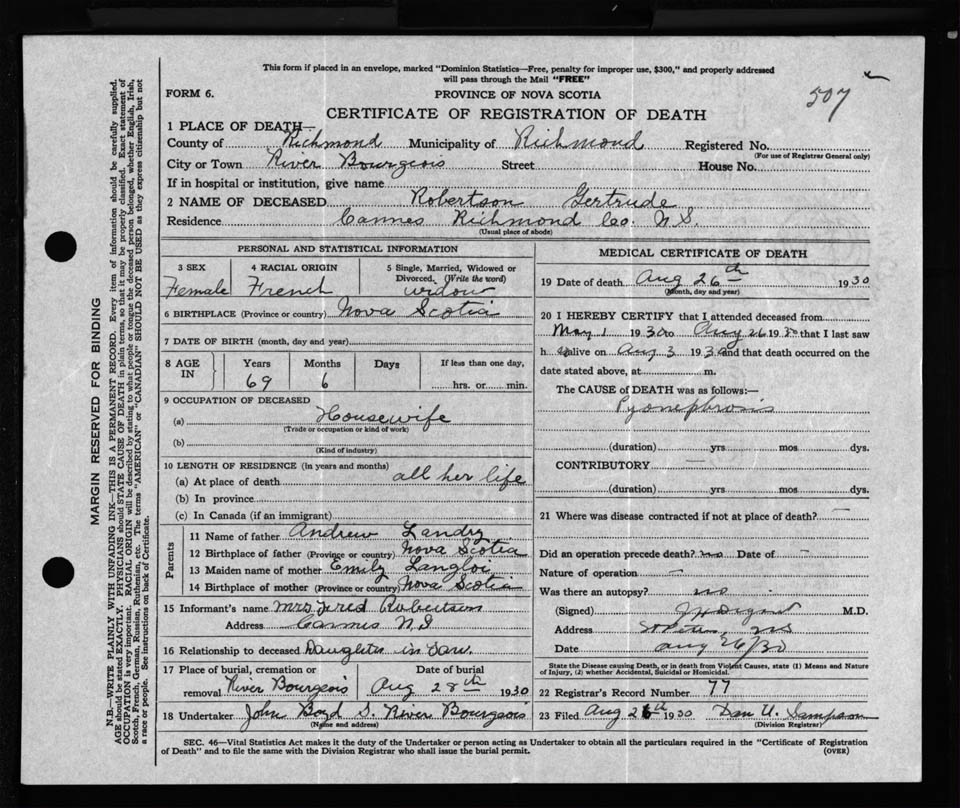 This form if placed in an envelope, marked "Dominion Statistics—Free, penalty for improper use, $300," and properly addressed
will pass through the Mail "FREE"
507
FORM 6.
PROVINCE OF NOVA SCOTIA
CERTIFICATE OF REGISTRATION OF DEATH
1 PLACE OF DEATH—
County of Richmond Municipality of Richmond Registered No.
(For use of Registrar General only)
City or Town River Bourgeois Street House No.
If in hospital or institution, give name
2 NAME OF DECEASED Robertson Gertrude
Residence Cannes Richmond Co. N.S.
(Usual place of abode)
PERSONAL AND STATISTICAL INFORMATION
3 SEX
Female
4 RACIAL ORIGIN
French
5 Single, Married, Widowed or
Divorced. (Write the word)
widow
6 BIRTHPLACE (Province or country) Nova Scotia
7 DATE OF BIRTH (month, day and year)
8 AGE
IN
Years Months Days If less than one day,
69 6 hrs. or min.
9 OCCUPATION OF DECEASED
(a) Housewife
(Trade or occupation or kind of work)
(b)
(Kind of industry)
10 LENGTH OF RESIDENCE (in years and months)
(a) At place of death all her life
(b) In province
(c) In Canada (if an immigrant)
Parents
11 Name of father Andrew Landry
12 Birthplace of father (Province or country) Nova Scotia
13 Maiden name of mother Emily Langloi
14 Birthplace of mother (Province or country) Nova Scotia
15 Informant's name Mrs. Robertson
Address Cannes N.S
16 Relationship to deceased Daughter in law.
17 Place of burial, cremation or
removal River Bourgeois
Date of burial
Aug 28th 1930
18 Undertaker John Boyd S. River Bourgeois
(Name and address)
MEDICAL CERTIFICATE OF DEATH
19 Date of death Aug 26th 1930
(Month, day and year)
20 I HEREBY CERTIFY that I attended deceased from
May 1 1930 to Aug 26 193 that I last saw
h alive on Aug 3 1930 and that death occurred on the
date stated above, at m.
The CAUSE of DEATH was as follows:—
Pyonephrosis
(duration) yrs mos dys.
CONTRIBUTORY —
(duration) yrs mos dys.
21 Where was disease contracted if not at place of death? —
Did an operation precede death? no Date of —
Nature of operation —
Was there an autopsy? no
(Signed) M.D.
Address N.S
Date Aug 26/30
State the Disease causing Death, or in death from Violent Causes, state (1) Means and Nature
of Injury, (2) whether Accidental, Suicidal or Homicidal.
22 Registrar's Record Number 77
23 Filed Aug 26th 1930 Dan U. Sampson
(Division Registrar)
SEC. 46—Vital Statistics Act makes it the duty of the Undertaker or person acting as Undertaker to obtain all the particulars required in the "Certificate of Registration
of Death" and to file the same with the Division Registrar who shall issue the burial permit.
(OVER)
MARGIN RESERVED FOR BINDING
N.B.—WRITE PLAINLY WITH UNFADING INK—THIS IS A PERMANENT RECORD. Every item of information should be carefully supplied.
AGE should be stated EXACTLY. PHYSICIANS should STATE CAUSE OF DEATH in plain terms, so that it may be properly classified. Exact statement of
OCCUPATION is very important. RACIAL ORIGIN will be described by stating to what people or tongue the deceased person belonged, whether English, Irish,
Scotch, French, German, Russian, Ruthenian, etc. The terms "AMERICAN" or "CANADIAN" SHOULD NOT BE USED as they express citizenship but not
a race or people. See instructions on back of Certificate.